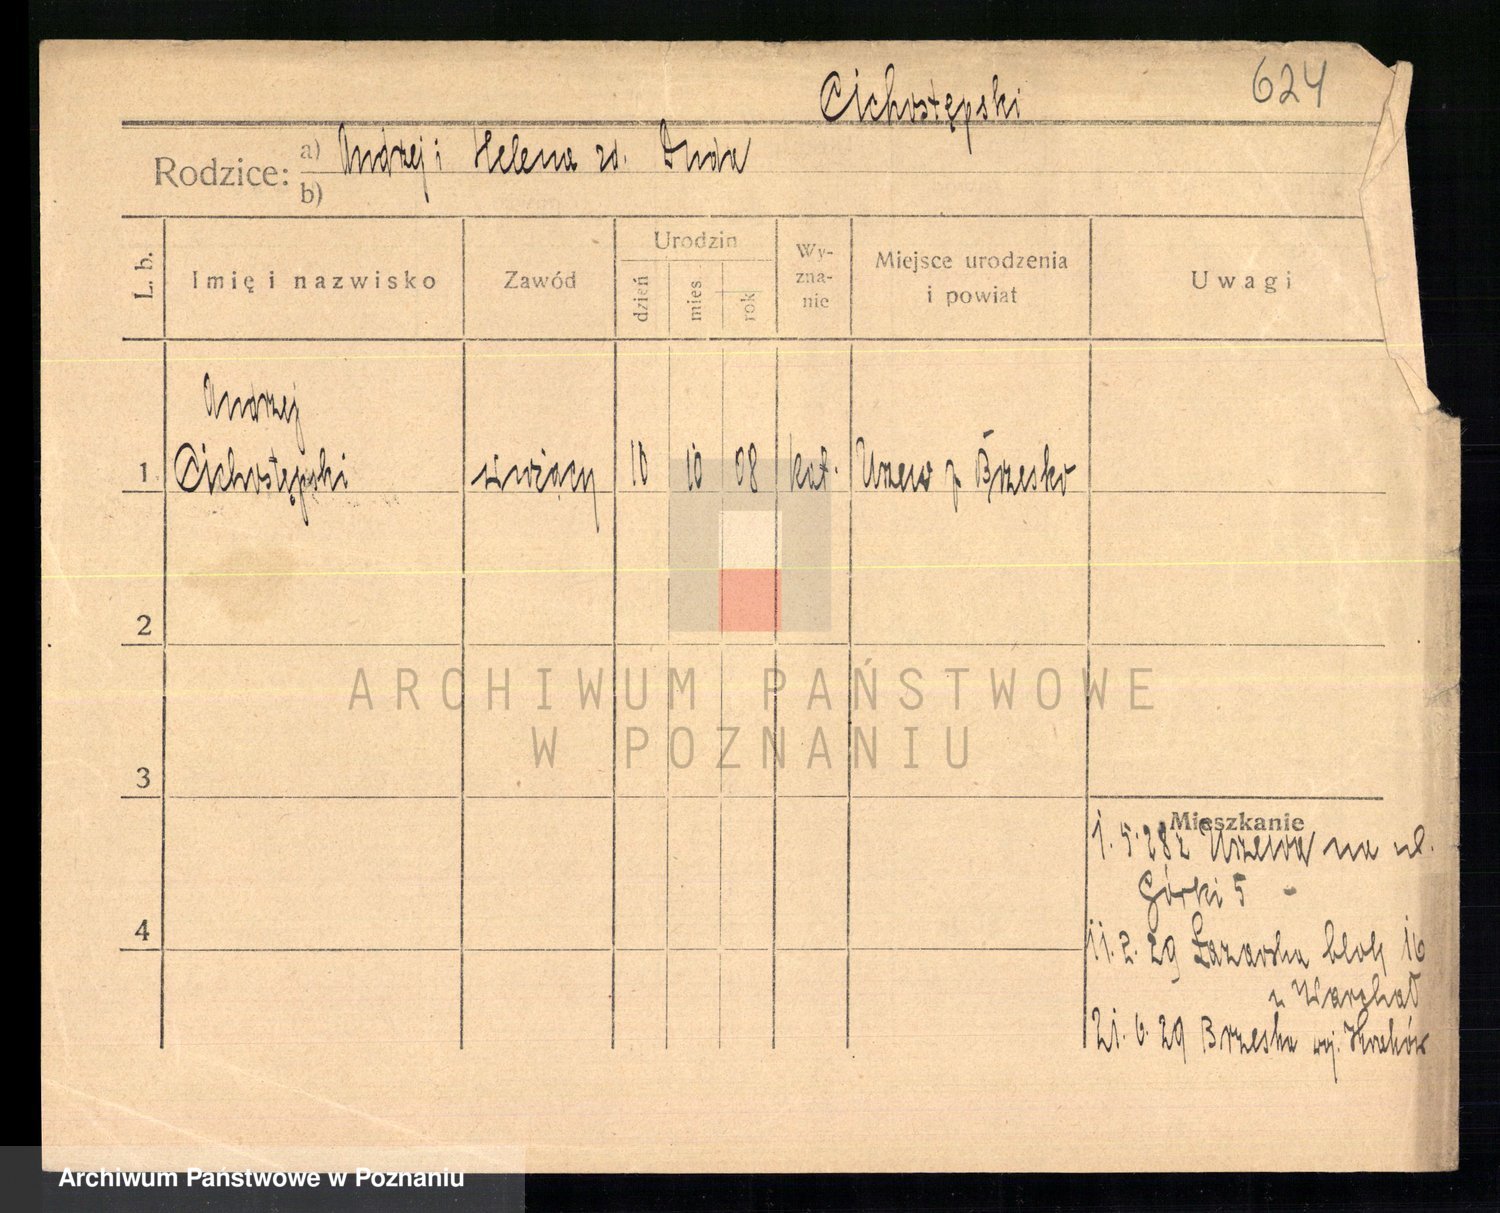 Cichostępski
624
Rodzice: a) Andrzej i Helena zd. Duda
b)
L. b.
Imię i nazwisko
Zawód
Urodzin
dzień
mies.
rok
Wy-
zna-
nie
Miejsce urodzenia
i powiat
Uwagi
Andrzej
1 Cichostępski służący 10 10 08 kat. Uszew p Brzesko
2
3
4
Mieszkanie
1.5.28 z Uszewa na ul.
Górki 5 -
11.2.29 Łazarska blok 16
u
21.6.29 Brzeska woj. Kraków
ARCHIWUM PAŃSTWOWE
W POZNANIU
Archiwum Państwowe w Poznaniu